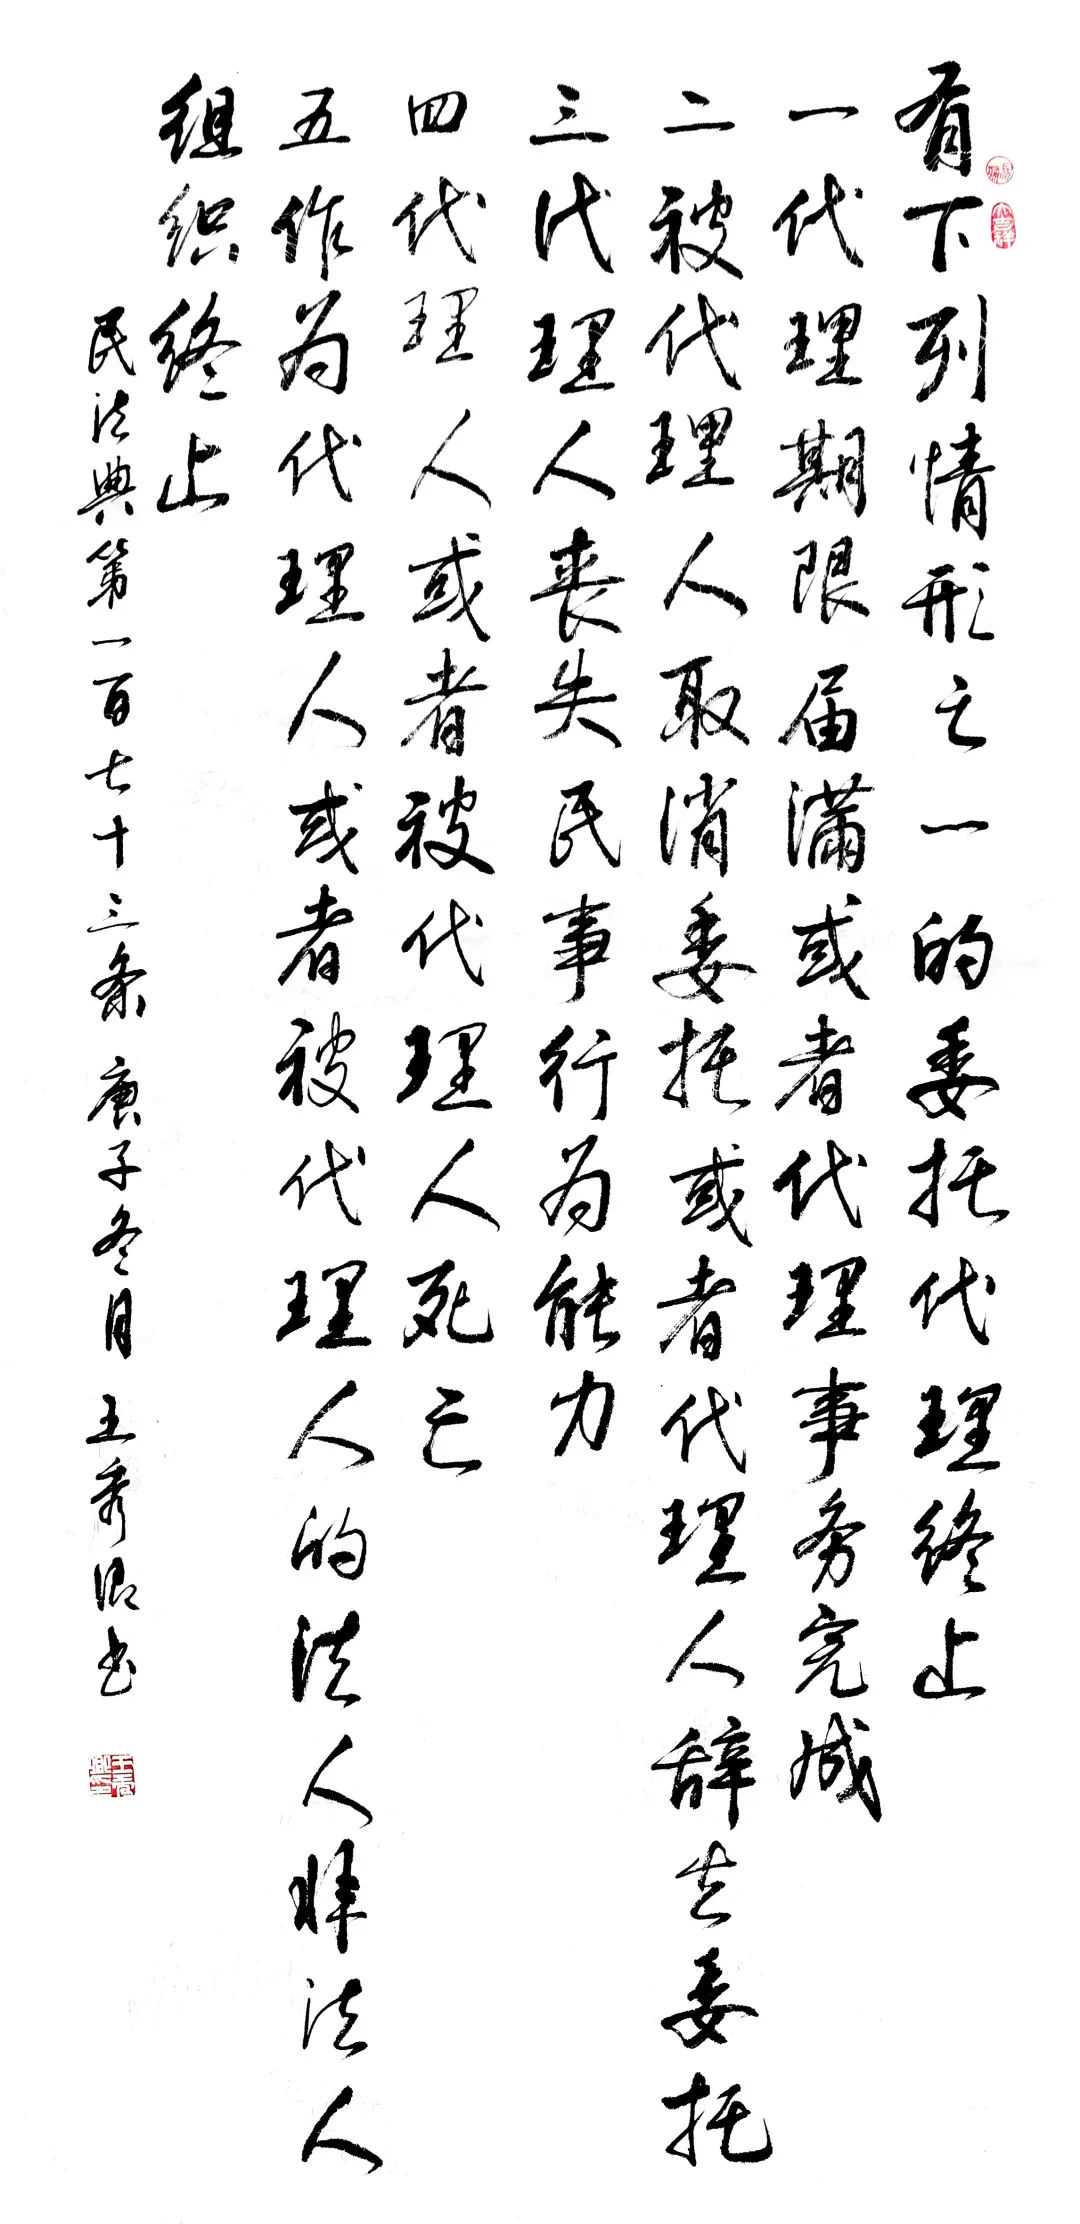 有下列情形之一的委托代理终止
一代理期限届满或者代理事务完成
二被代理人取消委托或者代理人辞去委托
三代理人丧失民事行为能力
四代理人或者被代理人死亡
五作为代理人或者被代理人的法人非法人
组织终止
民法典第一百七十三条 庚子冬月 王秀卿书